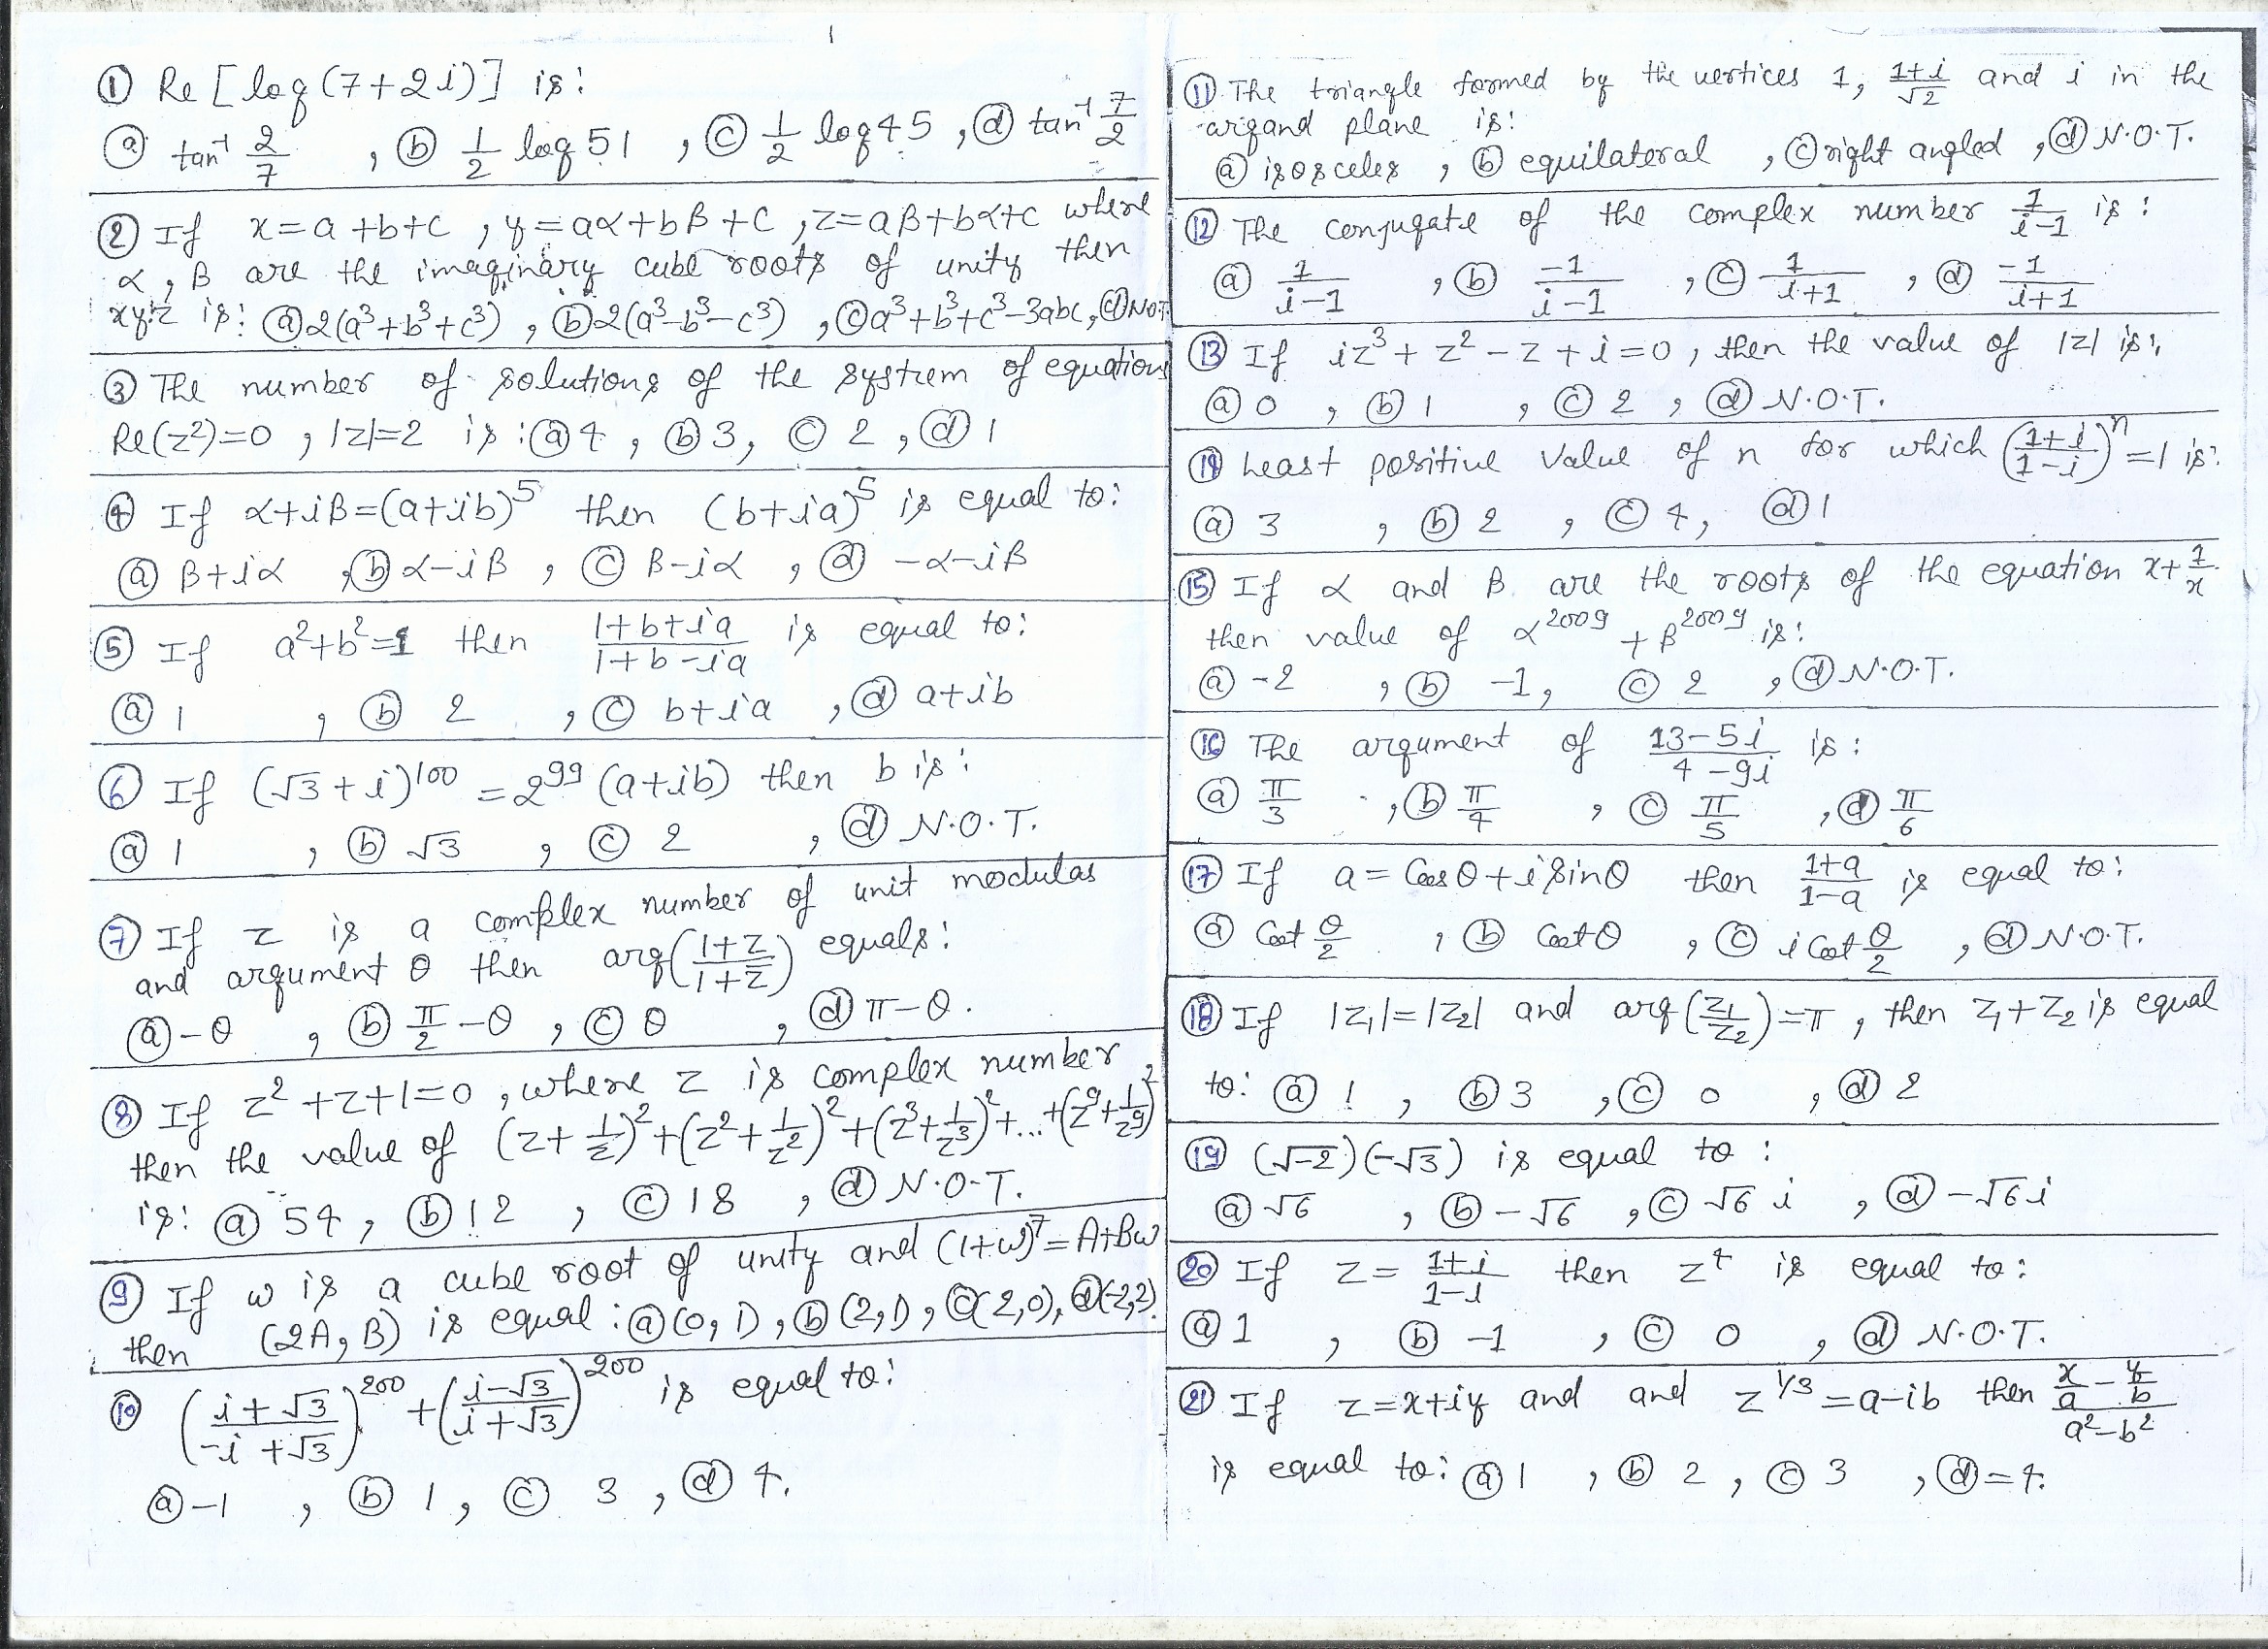 ① Re [log(7+2i)] is:
ⓐ tan⁻¹ 2/7 , ⓑ 1/2 log 51 , ⓒ 1/2 log 45 , ⓓ tan⁻¹ 7/2
② If x=a+b+c , y=aα+bβ+c , z=aβ+bα+c where
α, β are the imaginary cube roots of unity then
xyz is: ⓐ 2(a³+b³+c³) , ⓑ 2(a³-b³-c³) , ⓒ a³+b³+c³-3abc, ⓓ NOT
③ The number of solutions of the system of equations
Re(z²)=0 , |z|=2 is : ⓐ 4 , ⓑ 3, ⓒ 2 , ⓓ 1
④ If α+iβ=(a+ib)⁵ then (b+ia)⁵ is equal to:
ⓐ β+iα , ⓑ α-iβ , ⓒ β-iα , ⓓ -α-iβ
⑤ If a²+b²=1 then (1+b+ia)/(1+b-ia) is equal to:
ⓐ 1 , ⓑ 2 , ⓒ b+ia , ⓓ a+ib
⑥ If (√3+i)¹⁰⁰ = 2⁹⁹ (a+ib) then b is:
ⓐ 1 , ⓑ √3 , ⓒ 2 , ⓓ N.O.T.
⑦ If z is a complex number of unit modulas
and argument θ then arg((1+z)/(1+z̄)) equals:
ⓐ -θ , ⓑ π/2 -θ , ⓒ θ , ⓓ π-θ.
⑧ If z²+z+1=0 , where z is complex number
then the value of (z+1/z)²+(z²+1/z²)²+(z³+1/z³)²+...+(z⁹+1/z⁹)²
is: ⓐ 54 , ⓑ 12 , ⓒ 18 , ⓓ N.O.T.
⑨ If ω is a cube root of unity and (1+ω)⁷=A+Bω
then (2A, B) is equal : ⓐ (0,1) , ⓑ (2,1) , ⓒ (2,0), ⓓ (-2,2).
⑩ ((i+√3)/(-i+√3))²⁰⁰ + ((i-√3)/(i+√3))²⁰⁰ is equal to:
ⓐ -1 , ⓑ 1 , ⓒ 3 , ⓓ 4.
⑪ The triangle formed by the vertices 1, (1+i)/√2 and i in the
argand plane is:
ⓐ isosceles , ⓑ equilateral , ⓒ right angled , ⓓ N.O.T.
⑫ The conjugate of the complex number 1/(i-1) is :
ⓐ 1/(i-1) , ⓑ -1/(i-1) , ⓒ 1/(i+1) , ⓓ -1/(i+1)
⑬ If iz³+z²-z+i=0 , then the value of |z| is:
ⓐ 0 , ⓑ 1 , ⓒ 2 , ⓓ N.O.T.
⑭ Least positive value of n for which ((1+i)/(1-i))ⁿ=1 is:
ⓐ 3 , ⓑ 2 , ⓒ 4, ⓓ 1
⑮ If α and β are the roots of the equation x+1/x
then value of α²⁰⁰⁹ + β²⁰⁰⁹ is:
ⓐ -2 , ⓑ -1, ⓒ 2 , ⓓ N.O.T.
⑯ The argument of (13-5i)/(4-9i) is :
ⓐ π/3 , ⓑ π/4 , ⓒ π/5 , ⓓ π/6
⑰ If a = Cosθ+iSinθ then (1+a)/(1-a) is equal to:
ⓐ Cot θ/2 , ⓑ Cotθ , ⓒ i Cot θ/2 , ⓓ N.O.T.
⑱ If |z₁|=|z₂| and arg(z₁/z₂)=π , then z₁+z₂ is equal
to: ⓐ 1 , ⓑ 3 , ⓒ 0 , ⓓ 2
⑲ (√-2)(-√3) is equal to :
ⓐ √6 , ⓑ -√6 , ⓒ √6 i , ⓓ -√6 i
⑳ If z = (1+i)/(1-i) then z⁴ is equal to:
ⓐ 1 , ⓑ -1 , ⓒ 0 , ⓓ N.O.T.
㉑ If z=x+iy and and z^(1/3) =a-ib then (x/a - y/b)/(a²-b²)
is equal to: ⓐ 1 , ⓑ 2 , ⓒ 3 , ⓓ =4.